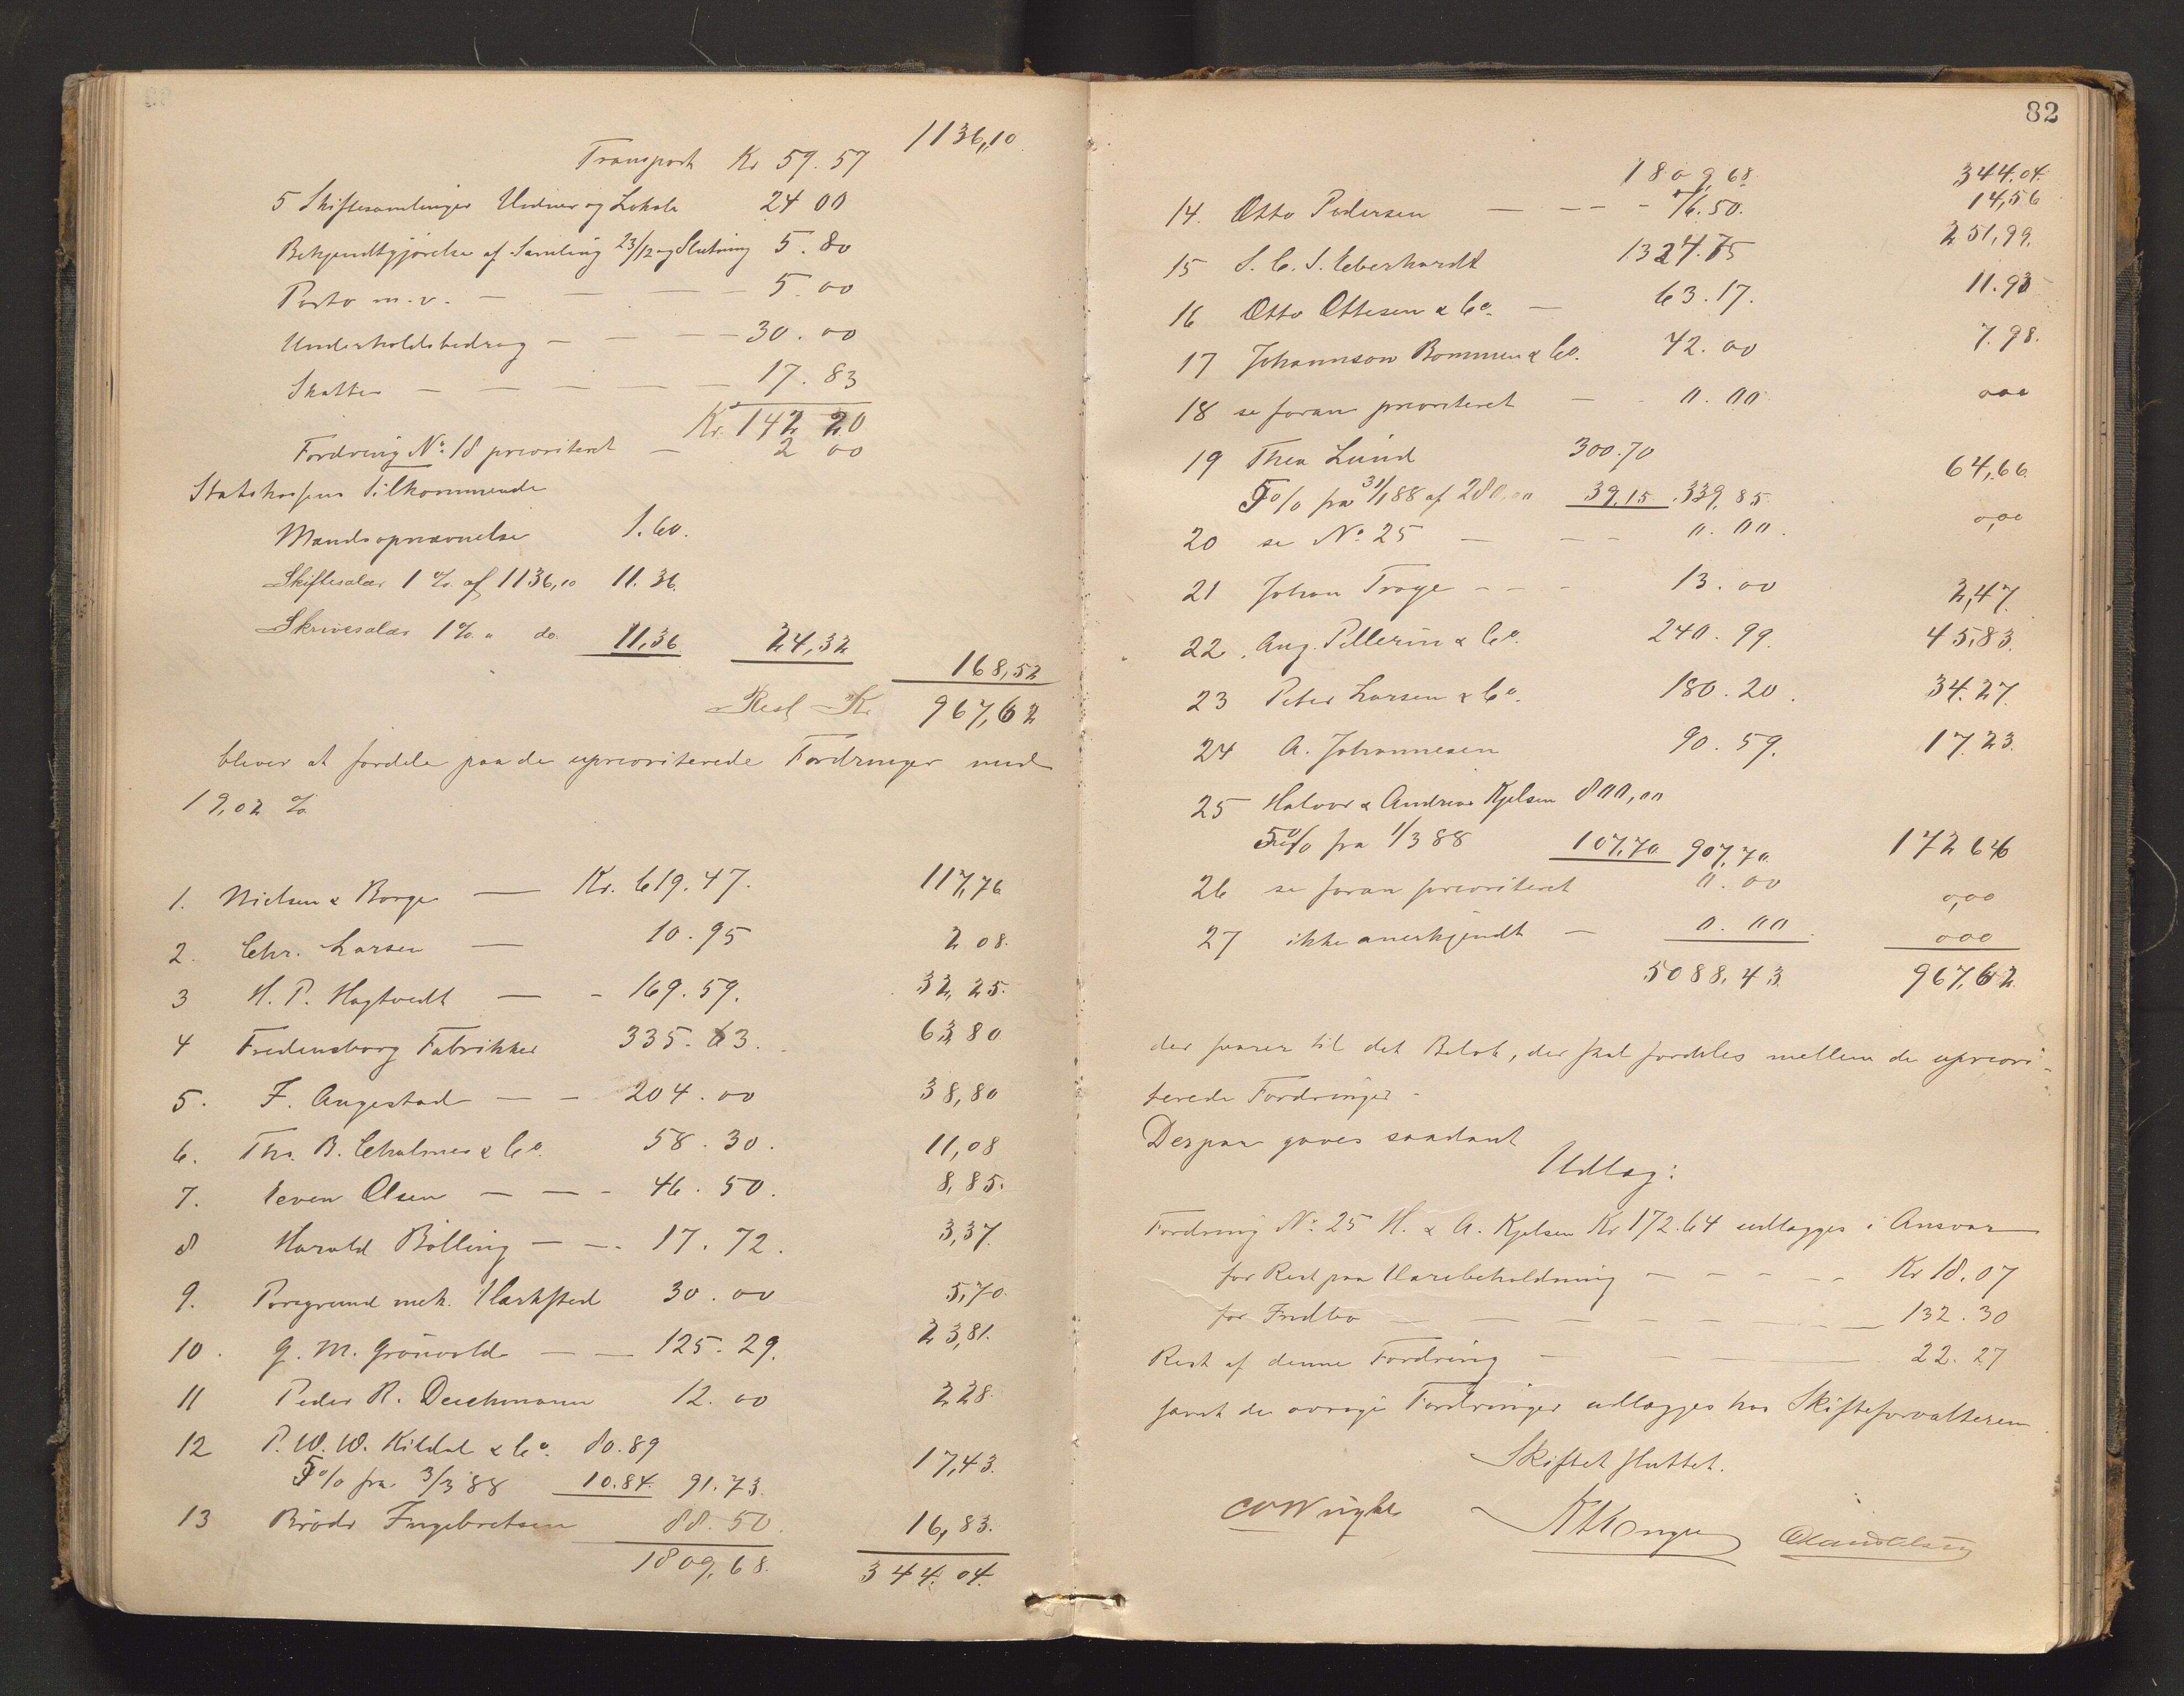 1136,10
Transport Kr 59.57
5 Skiftesamlinger Vidner og Lokale 24 00
Bekjendtgjørelse af Samling 23/12 og Slutning 5.80
Porto m.v. — — — — 5.00
Underholdsbidrag — — — — 30.00
Skatter — — — — — 17.83
Kr. 142 20
Fordring No. 18 prioriteret — 2 00
Statskassens Tilkommende
Mandsopnævnelse 1.60.
Skiftesalær 1 % af 1136,10 11.36.
Skrivesalær 1 % " do. 11,36 24,32
168,52
Rest Kr 967,62
bliver at fordele paa de uprioriterede Fordringer med
19,02 %
1. Nielsen & Borge — Kr. 619.47. 117,76
2. Chr. Larsen — 10.95 2 08.
3 H. P. Hagtvedt — - 169.59. 32,25.
4 Fredensborg Fabrikker 335.63. 63 80
5. F. Angestad — - 204.00 38,80
6. Ths. B. Chalmer & Co. 58.30. 11,08
7. Even Olsen — — - 46.50. 8,85.
8 Harald Bølling — — 17.72. 3,37.
9. Porsgrund mek. Værksted 30.00 5,70.
10. G. M. Grönvold — — 125.29. 23,81.
11 Peder R. Deichmann 12.00 2 28.
12 P. W. W. Kildal & Co. 80.89
5 % fra 3/3 88 10.84. 91.73. 17,43.
13 Brødr Ingebretsen 88.50. 16,83.
1809,68. 344.04.
82
1809,68 344.04.
14. Otto Pedersen — — — - 76.50. 14,56
15 S. C. S. Eberhardt 1324.75 251,99.
16 Otto Ottesen & Co. — 63.17. 11.93
17 Johannson Bommen & Co. 42.00 7.98.
18 se foran prioriteret — - 0.00 000
19 Thea Lund 300.70
5 % fra 31/1 88 af 280,00 39,15 339,85 64,66.
20 se No. 25 — — - 0.00. 0,00
21 Johan Troye - - - 13.00 2,47.
22. Aug. Pellerin & Co. 240.99. 45,83.
23 Peter Larsen & Co. 180.20. 34.27.
24 A. Johannesen 90.59. 17.23.
25 Halvor & Andreas Kjelsen 800,00
5 % fra 1/3 88 107,70 907,70. 172 64
26 se foran prioriteret 0.00 0,00
27 ikke anerkjendt — 0.00. 000
5088,43. 967,62.
der svarer til det Beløb, der skal fordeles mellem de upriori-
terede Fordringer -
Derpaa gjøres saadant
Udlæg:
Fordring No. 25 H. & A. Kjelsen Kr 172.64 udlægges i Ansvar
for Rest paa Varebeholdning — — — — Kr 18.07
for Indbo — — — — — — — 132.30
Rest af denne Fordring — — — 22.27
samt de øvrige Fordringer udlægges hos Skifteforvalteren.
Skiftet sluttet.